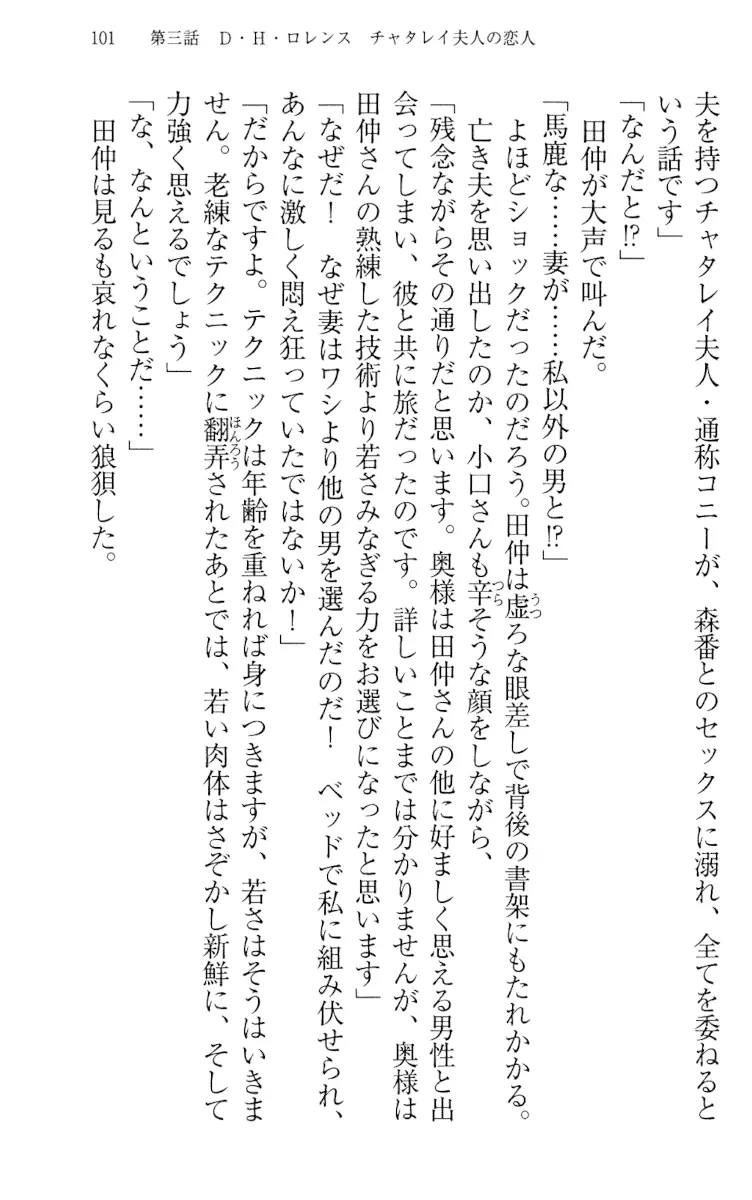 101　第三話　D・H・ロレンス　チャタレイ夫人の恋人
夫を持つチャタレイ夫人・通称コニーが、森番とのセックスに溺れ、全てを委ねると
いう話です」
「なんだと!?」
　田仲が大声で叫んだ。
「馬鹿な……妻が……私以外の男と!?」
　よほどショックだったのだろう。田仲は虚ろな眼差しで背後の書架にもたれかかる。
　亡き夫を思い出したのか、小口さんも辛そうな顔をしながら、
「残念ながらその通りだと思います。奥様は田仲さんの他に好ましく思える男性と出
会ってしまい、彼と共に旅だったのです。詳しいことまでは分かりませんが、奥様は
田仲さんの熟練した技術より若さみなぎる力をお選びになったと思います」
「なぜだ！　なぜ妻はワシより他の男を選んだのだ！　ベッドで私に組み伏せられ、
あんなに激しく悶え狂っていたではないか！」
「だからですよ。テクニックは年齢を重ねれば身につきますが、若さはそうはいきま
せん。老練なテクニックに翻弄されたあとでは、若い肉体はさぞかし新鮮に、そして
力強く思えるでしょう」
「な、なんということだ……」
　田仲は見るも哀れなくらい狼狽した。